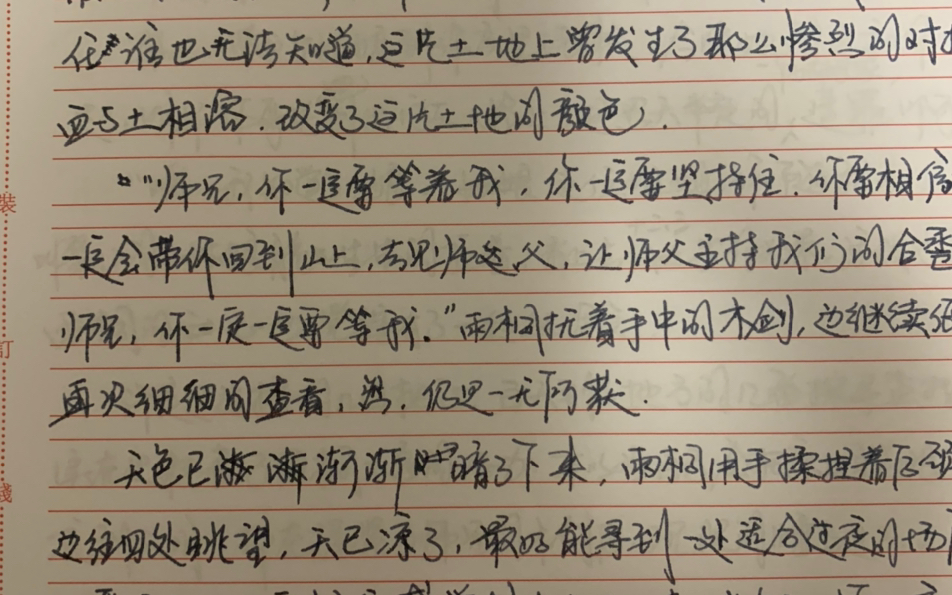 谁也无法知道,这片土地上曾发生了那么惨烈的对
血与土相溶.改变了这片土地的颜色.
"师兄,你一定要等着我,你一定要坚持住.你要相信
一定会带你回到山上,去见师父,让师父主持我们的合
师兄,你一定一定要等我."雨桐抚着手中的木剑,边继续
再次细细的查看,然,仍是一无所获.
天色已渐渐渐暗了下来,雨桐用手揉捏着后颈
边往四处眺望,天已凉了,最好能寻到一处适合过夜的场
裝
訂
綫